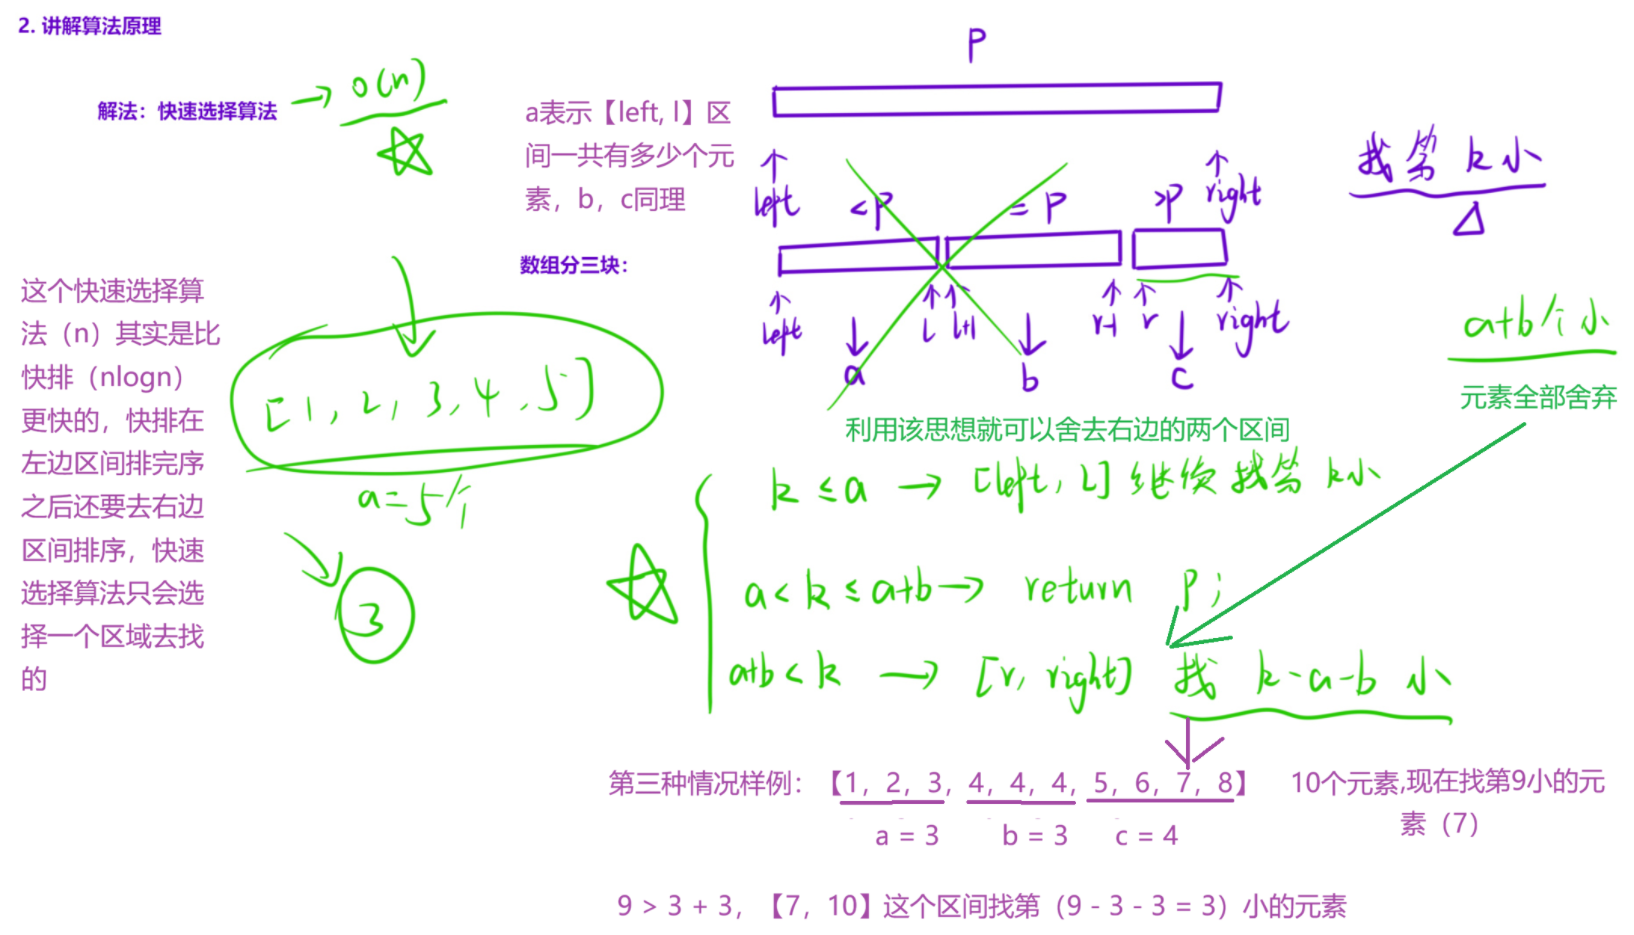 2. 讲解算法原理
解法：快速选择算法
→ O(n)
a表示【left, l】区
间一共有多少个元
素，b，c同理
P
left
right
<P
= P
>P
找第 k 小
数组分三块：
left
l
l+1
r-1
r
right
a
b
c
这个快速选择算
法（n）其实是比
快排（nlogn）
更快的，快排在
左边区间排完序
之后还要去右边
区间排序，快速
选择算法只会选
择一个区域去找
的
[1, 2, 3, 4, 5]
a=5个
3
a+b个小
元素全部舍弃
利用该思想就可以舍去右边的两个区间
k ≤ a → [left, l] 继续找第 k小
a < k ≤ a+b → return P;
a+b < k → [r, right] 找 k-a-b 小
第三种情况样例：【1，2，3，4，4，4，5，6，7，8】
10个元素,现在找第9小的元
素（7）
a = 3
b = 3
c = 4
9 > 3 + 3，【7，10】这个区间找第（9 - 3 - 3 = 3）小的元素